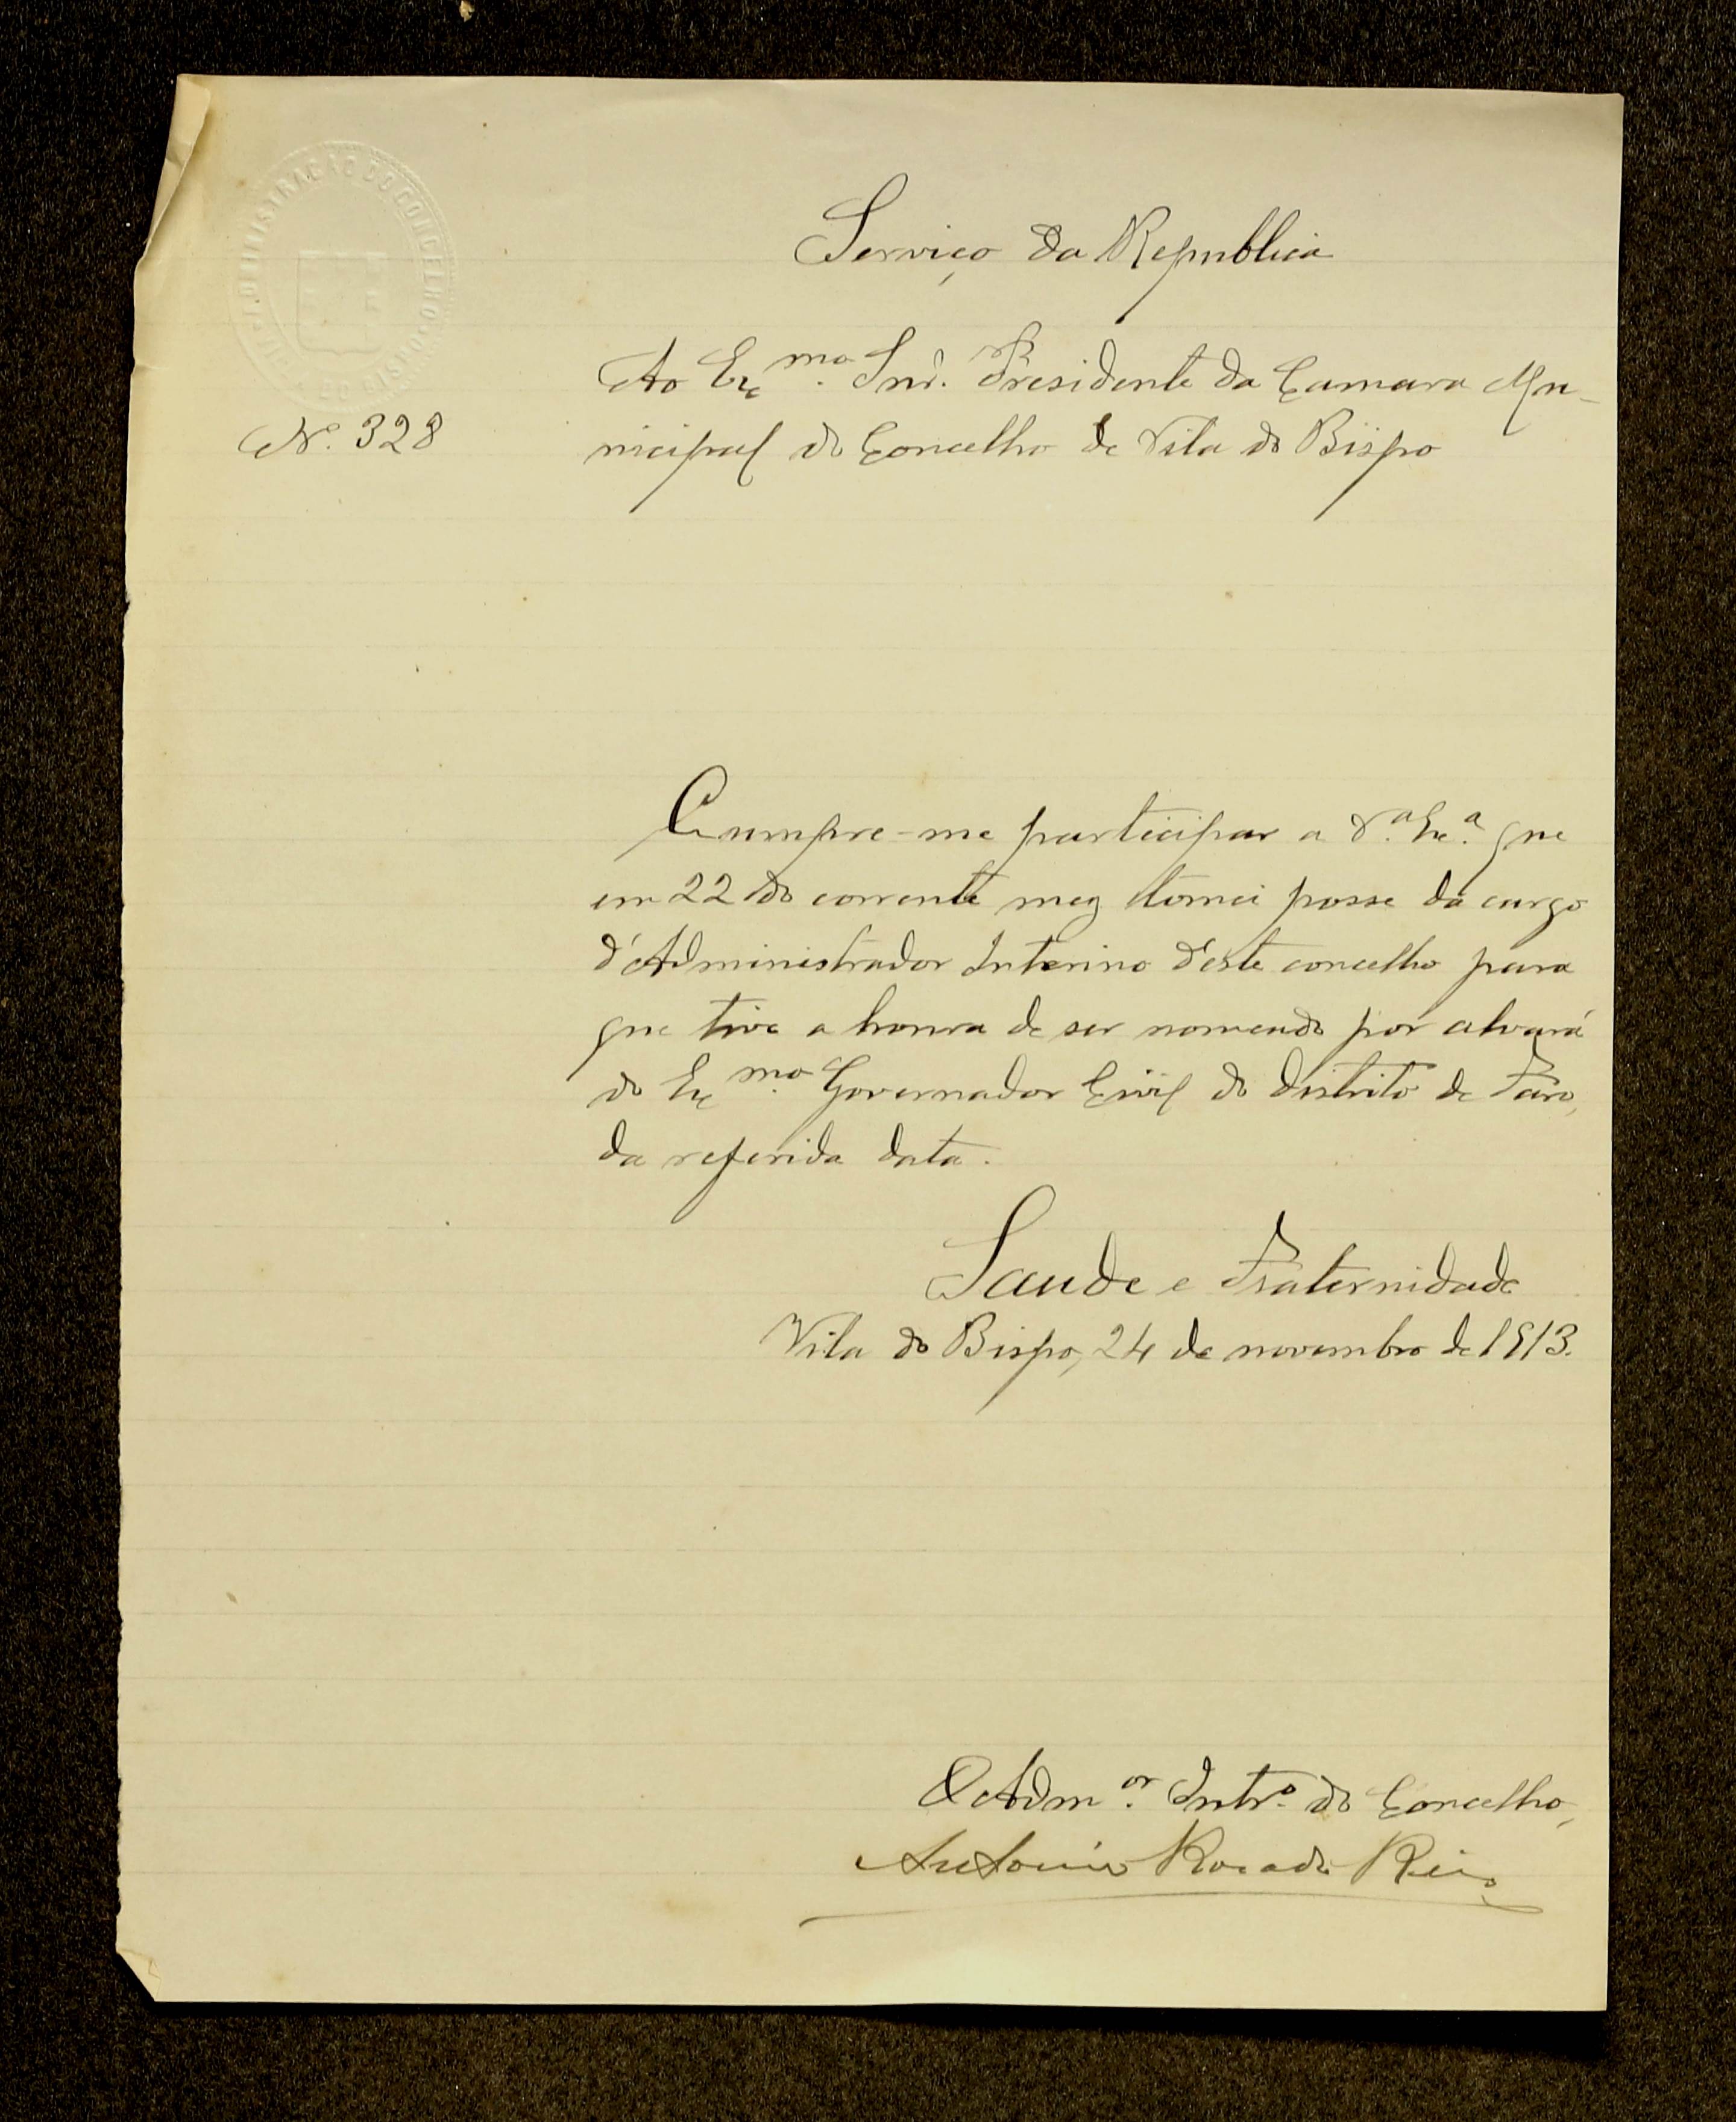 ADMINISTRAÇÃO DO CONCELHO
Serviço da Republica
Ao Exc.mo Snr. Presidente da Camara Mu-
N.º 328
nicipal do Concelho de Vila do Bispo
Cumpre-me participar a V.ª Ex.ª que
em 22 do corrente mez tomei posse do cargo
d'Administrador Interino d'este concelho para
que tive a honra de ser nomeado por alvará
do Exc.mo Governador Civil do distrito de Faro,
da referida data.
Saude e Fraternidade
Vila do Bispo, 24 de novembro de 1913.
O Adm.or Intr.º do Concelho,
Antonio Rocado Reis